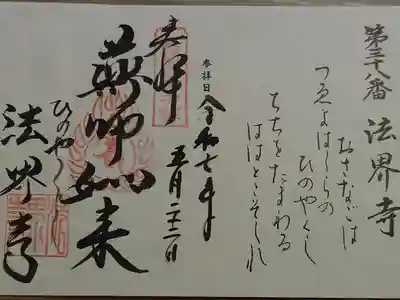 第三十八番 法界寺
おさなごは
つゑよはしらの
ひのやくし
ちちをたまわる
ははとこそしれ
参拝日 令和七年
五月二十二日
奉拝
薬師如来
ひのやくし
法界寺